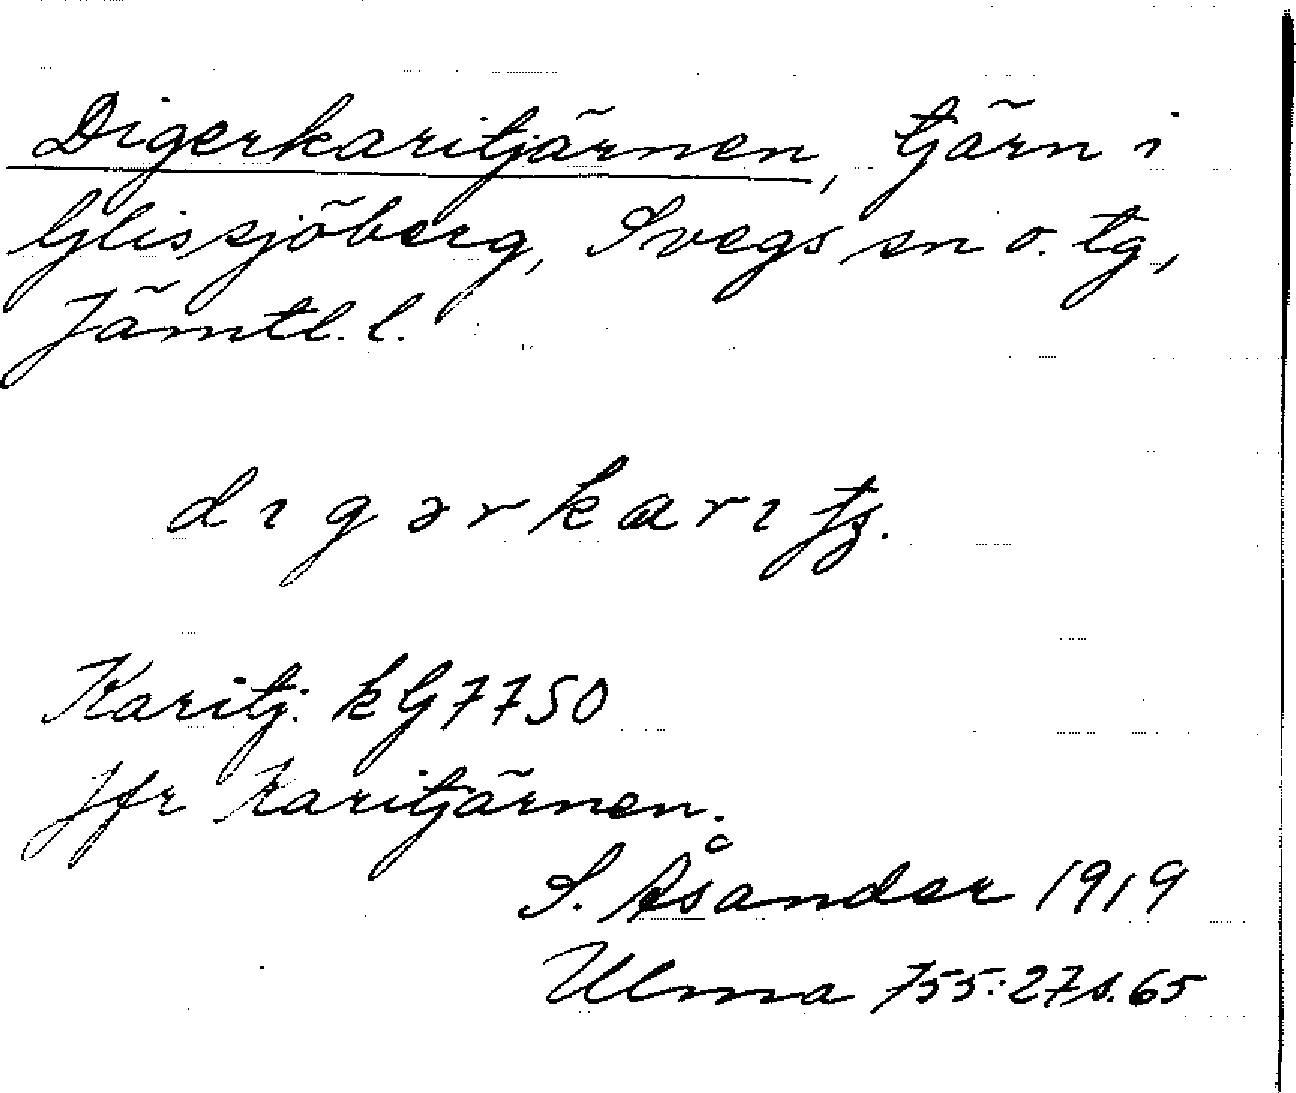 Digerkaritjärnen, tjärn i
Glissjöberg, Svegs sn o. tg,
Jämtl. l.
digərkaritj.
Karitj. kG 7750
Jfr Karitjärnen.
S. Åsander 1919
Ulma 755:27 s. 65